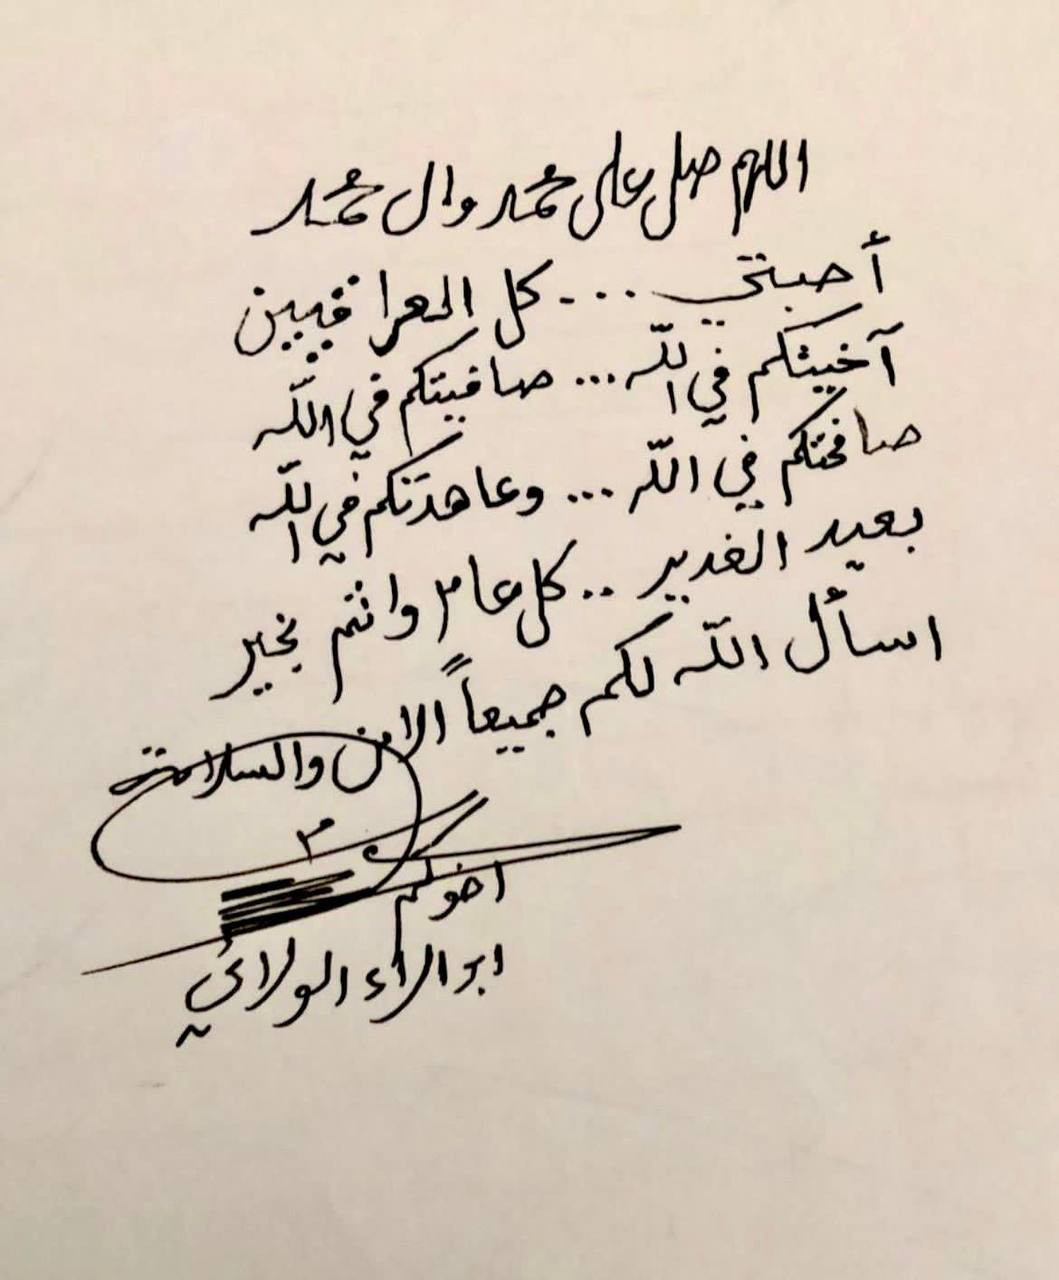 اللهم صل على محمد وال محمد
أحبتي ... كل العراقيين
آخيتكم في الله ... صافيتكم في الله
صافحتكم في الله ... وعاهدتكم في الله
بعيد الغدير .. كل عام وانتم بخير
اسأل الله لكم جميعاً الامن والسلامة
اخوكم
ابو الاء الولائي